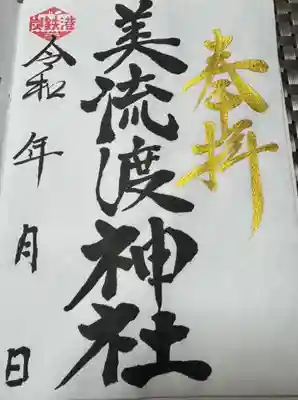 奉拝
美流渡神社
令和 年 月 日
炭鉄港